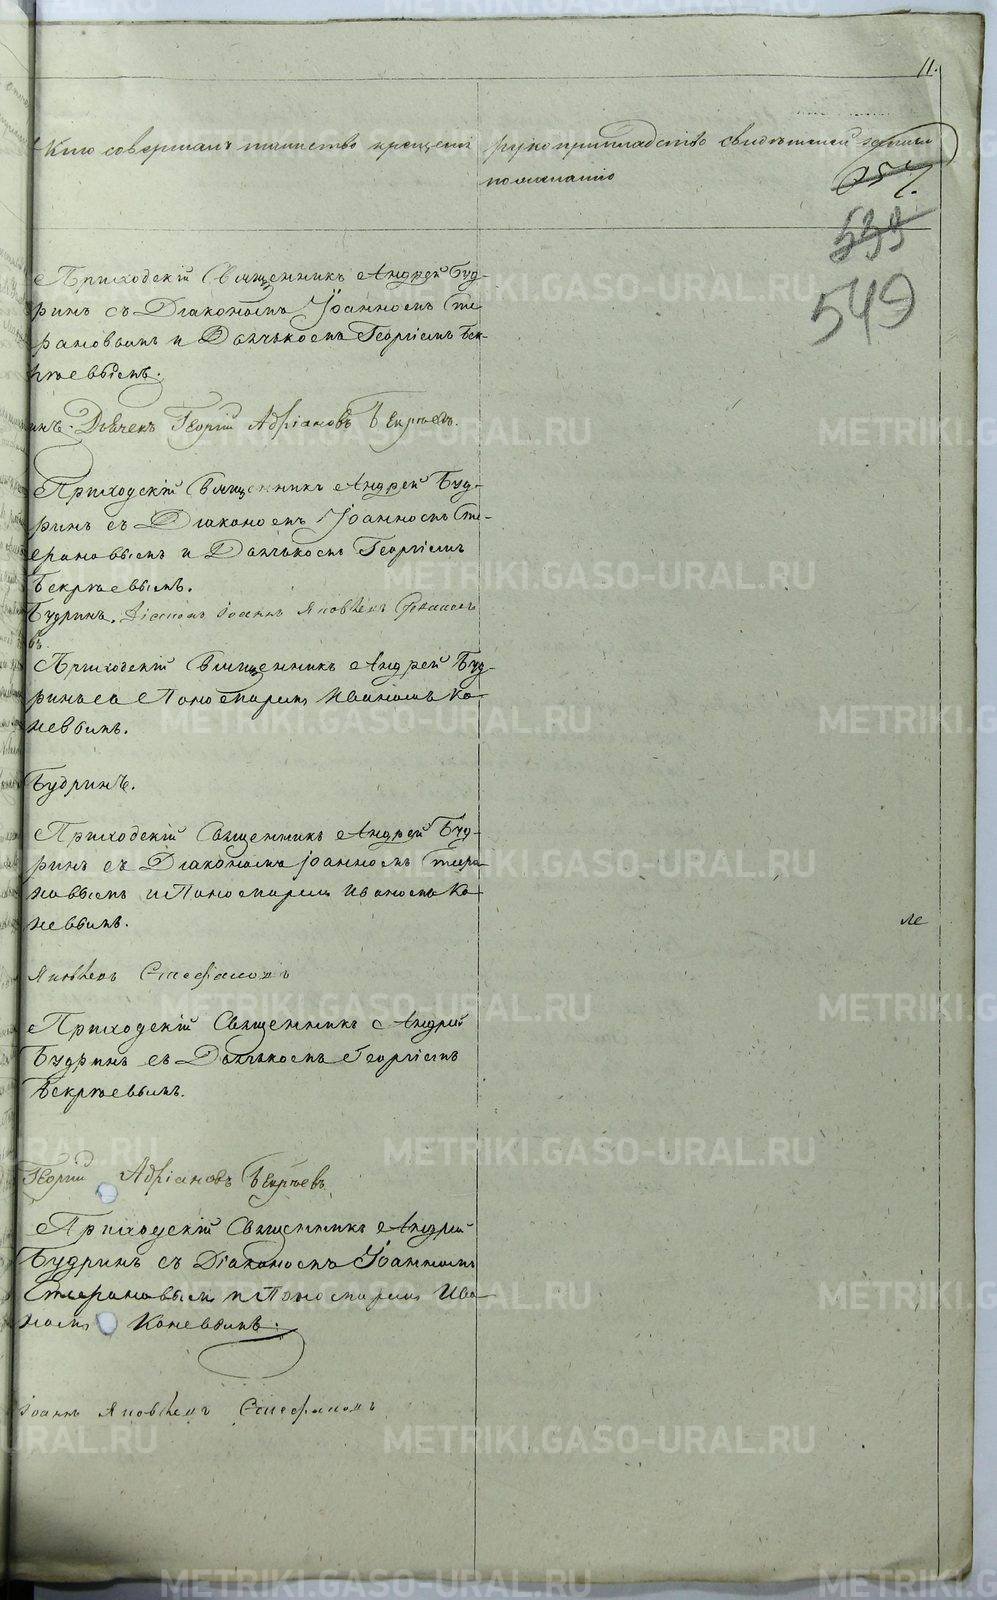 11.
Кто совершалъ таинство крещенiя
рукоприкладство свидѣтелей записи
по желанiю
257.
539
549
Приходскiй Священникъ Андрей Буд-
ринъ съ Дiакономъ Iоанномъ Сте
фановымъ и Дьячькомъ Георгiемъ Бек-
рѣевымъ.
инъ. Дьячекъ Георгiй Адрiановъ Бекрѣевъ.
Приходскiй Священникъ Андрей Буд-
ринъ съ Дiакономъ Iоанномъ Сте-
фановымъ и Дьячькомъ Георгiемъ
Бекрѣевымъ.
Будринъ. Дiаконъ Iоаннъ Яковлевъ Стефановъ
Приходскiй Священникъ Андрей Буд-
ринъ со Пономаремъ Иваномъ Ко-
невымъ.
Будринъ.
Приходскiй Священникъ Андрей Буд-
ринъ съ Дiакономъ Iоанномъ Стефа-
новымъ и Пономаремъ Иваномъ Ко-
невымъ.
ле
Яковлевъ Стефановъ
Приходскiй Священникъ Андрей
Будринъ съ Дьячькомъ Георгiемъ
Бекрѣевымъ.
Георгiй Адрiановъ Бекрѣевъ
Приходскiй Священникъ Андрей
Будринъ съ Дiакономъ Iоанномъ
Стефановымъ и Пономаремъ Ива-
номъ Коневымъ.
Iоаннъ Яковлевъ Стефановъ
METRIKI.GASO-URAL.RU